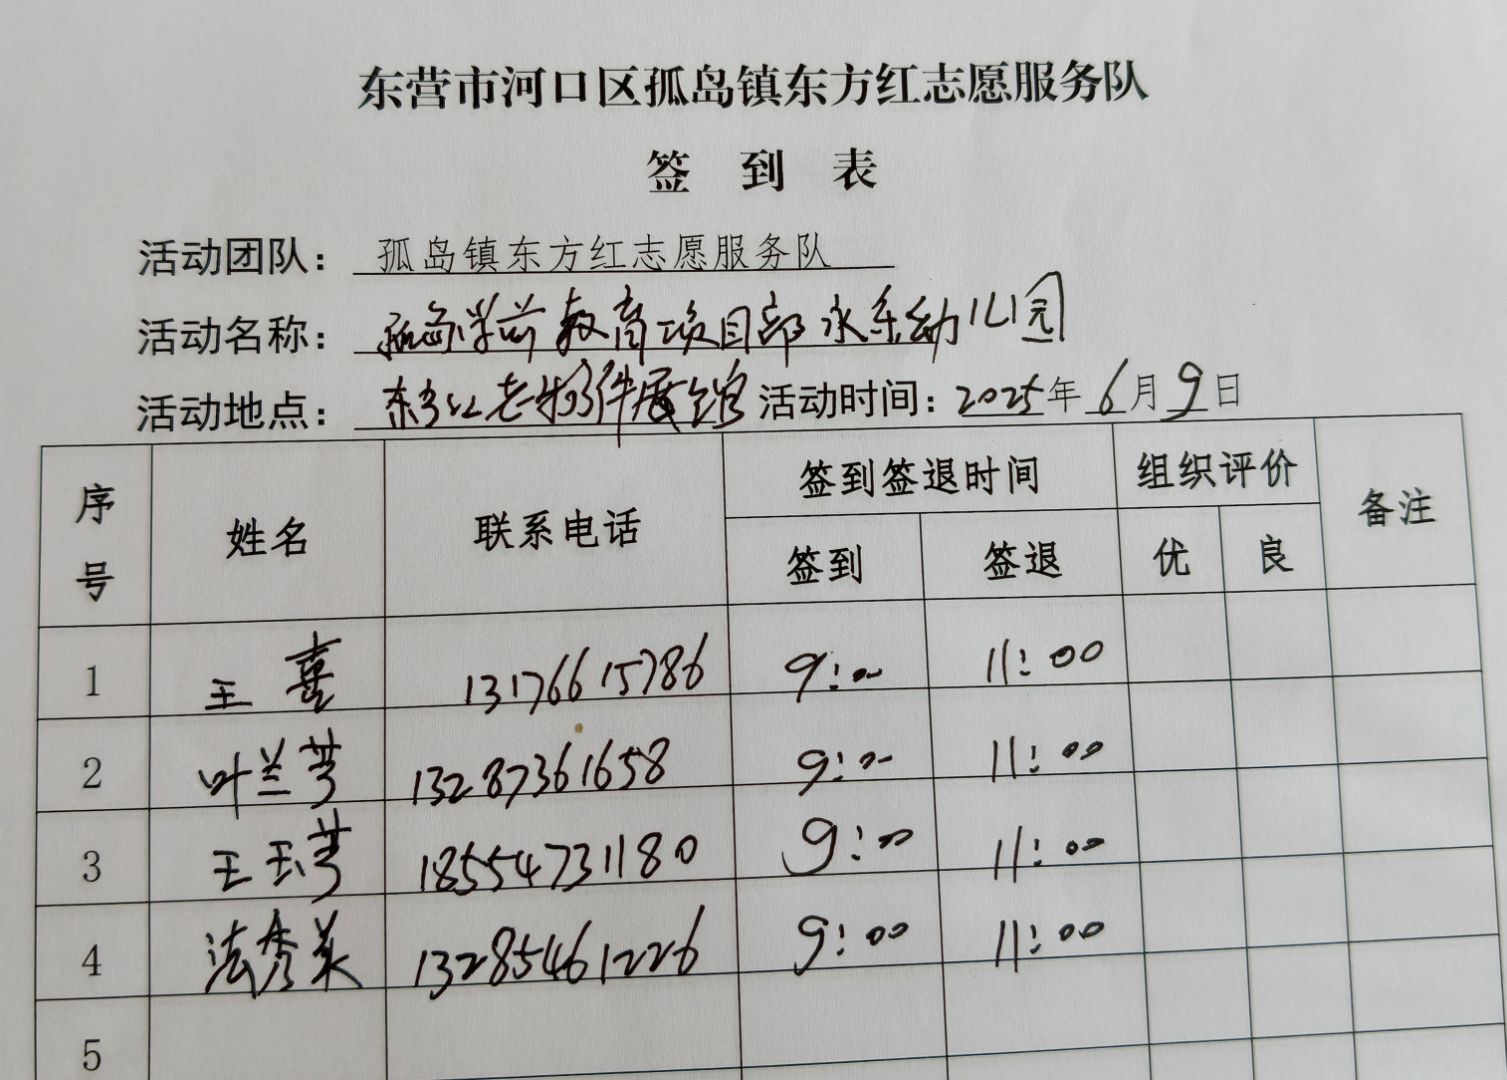 东营市河口区孤岛镇东方红志愿服务队
签 到 表
活动团队：孤岛镇东方红志愿服务队
活动名称：孤岛学前教育项目部永乐幼儿园
活动地点：东方红老物件展馆 活动时间：2025年6月9日
序号 姓名 联系电话 签到签退时间 组织评价 备注
签到 签退 优 良
1 王喜 13176615786 9:00 11:00
2 叶兰芳 13287361658 9:00 11:00
3 王玉芳 18554731180 9:00 11:00
4 法秀美 13285461226 9:00 11:00
5